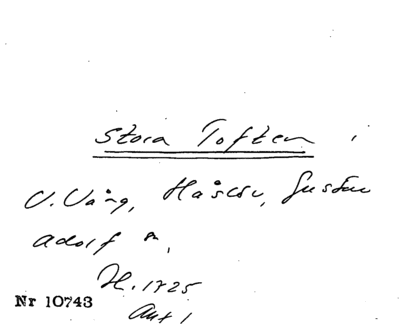 Stora Toften
V. Vång, Håslöv, Gustav
Adolf
H. 1725
Nr 10743
Ant 1